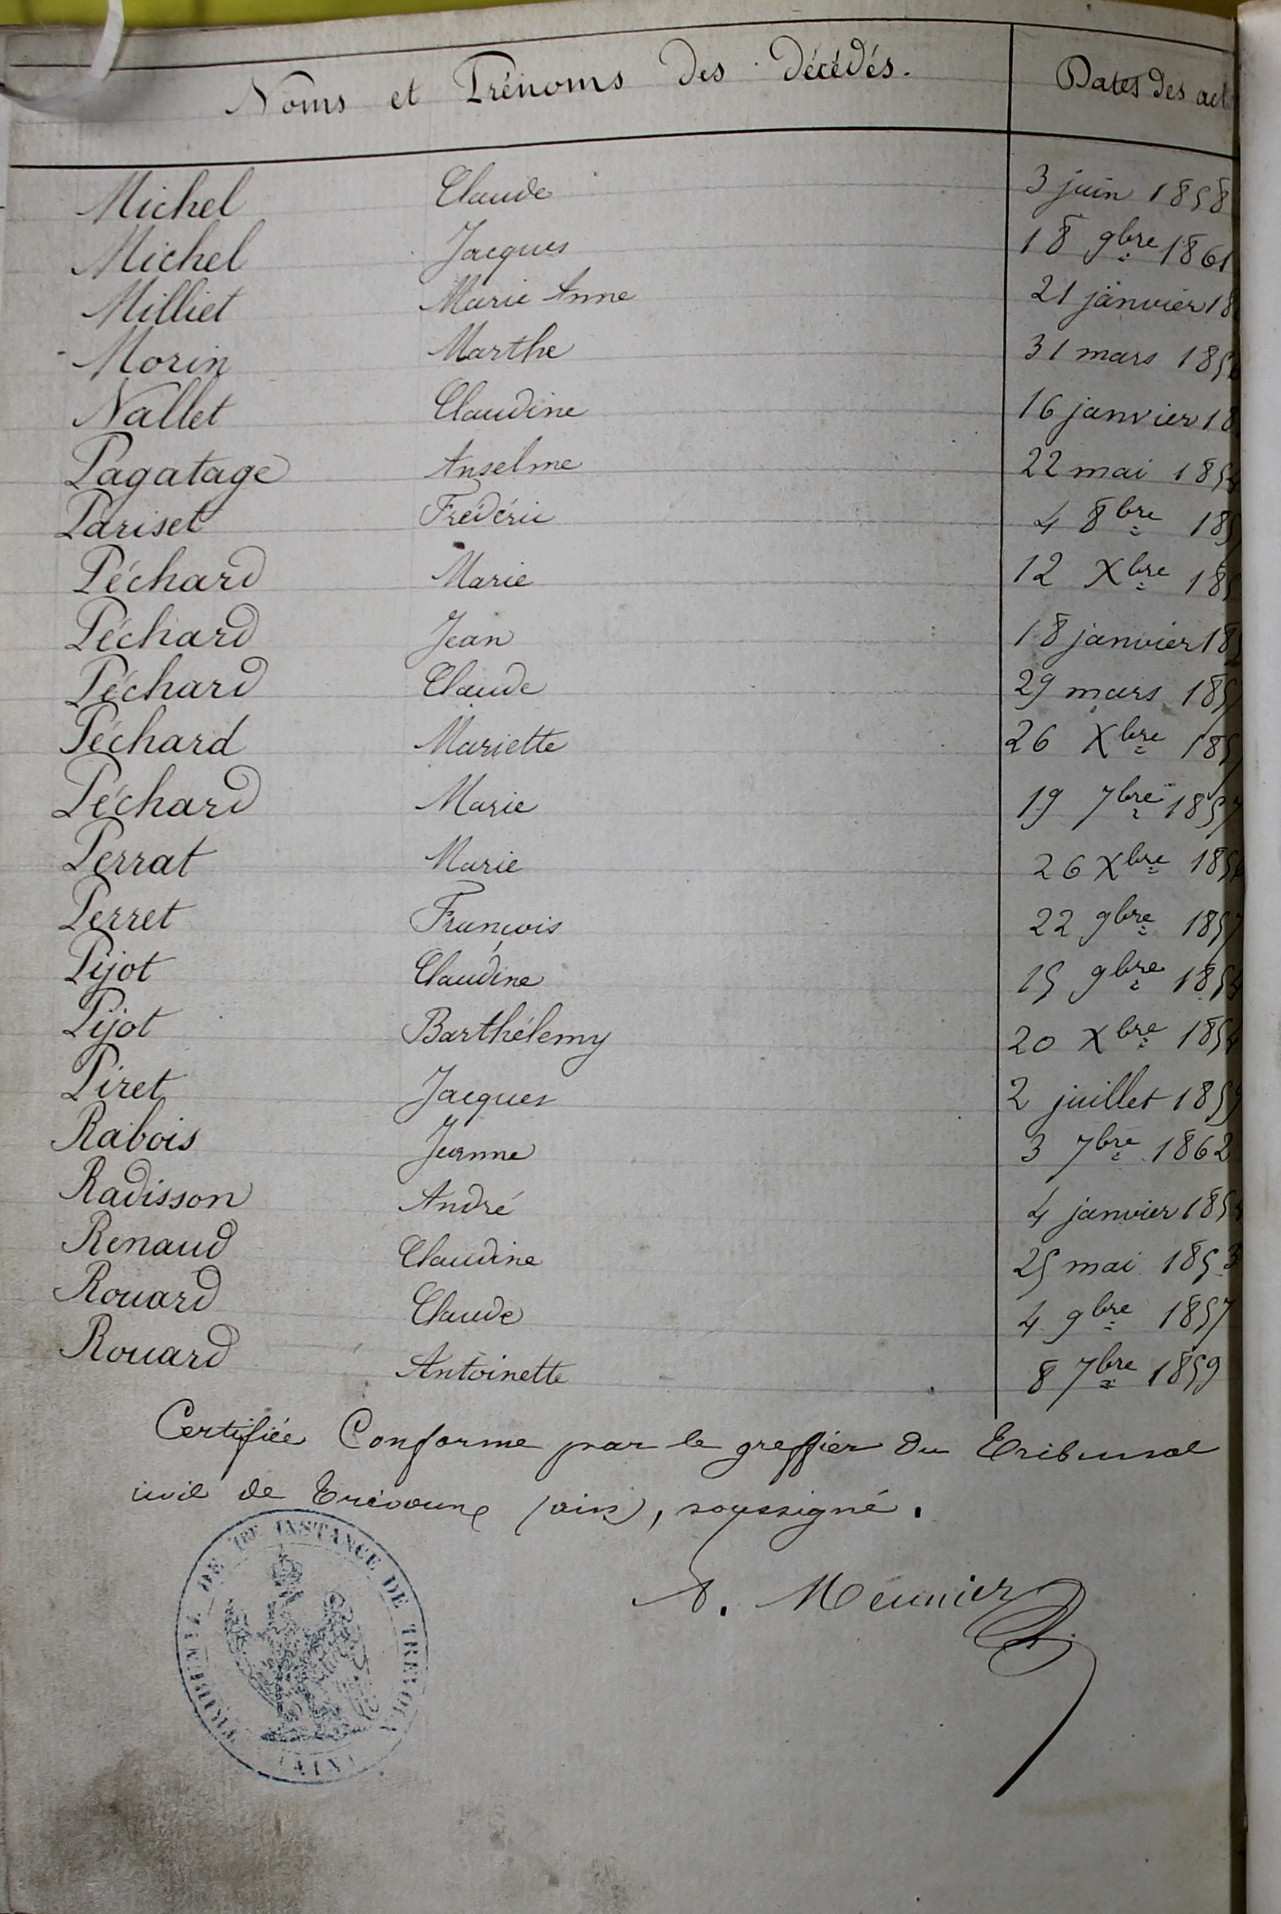 Noms et Prénoms des décédés. Dates des act
Michel Claude 3 juin 1858
Michel Jacques 18 9bre 1861
Milliet Marie Anne 21 janvier 18
Morin Marthe 31 mars 185
Nallet Claudine 16 janvier 18
Pagatage Anselme 22 mai 185
Pariset Frédéric 4 8bre 185
Péchard Marie 12 Xbre 185
Péchard Jean 18 janvier 18
Péchard Claude 29 mars 185
Péchard Mariette 26 Xbre 185
Péchard Marie 19 7bre 1857
Perrat Marie 26 Xbre 185
Perret François 22 9bre 1857
Pijot Claudine 15 9bre 185
Pijot Barthélemy 20 Xbre 185
Piret Jacques 2 juillet 1859
Rabois Jeanne 3 7bre 1862
Radisson André 4 janvier 185
Renaud Claudine 25 mai 1853
Rouard Claude 4 9bre 1857
Rouard Antoinette 8 7bre 1859
Certifiée Conforme par le greffier du Tribunal
civil de Trévoux (ain), soussigné.
A. Meunier
TRIBUNAL DE 1RE INSTANCE DE TREVOUX
(AIN)